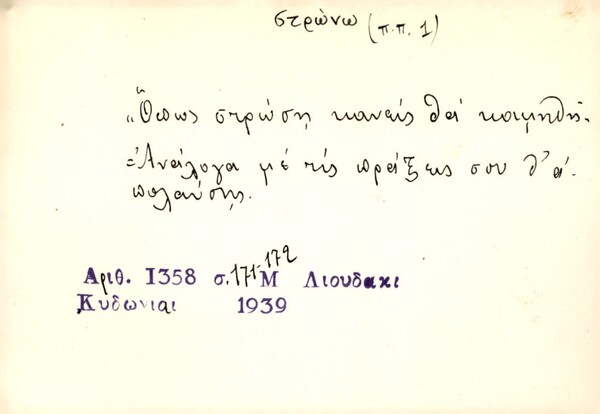 στρώνω (π.π. 1)
„Όπως στρώση κανείς θα κοιμηθή.
=Ανάλογα μέ τίς πράξεις σου θ' ά-
πολαύσης.
Αριθ. 1358 σ. 171-172 Μ Λιουδακι
Κυδωνιαι 1939